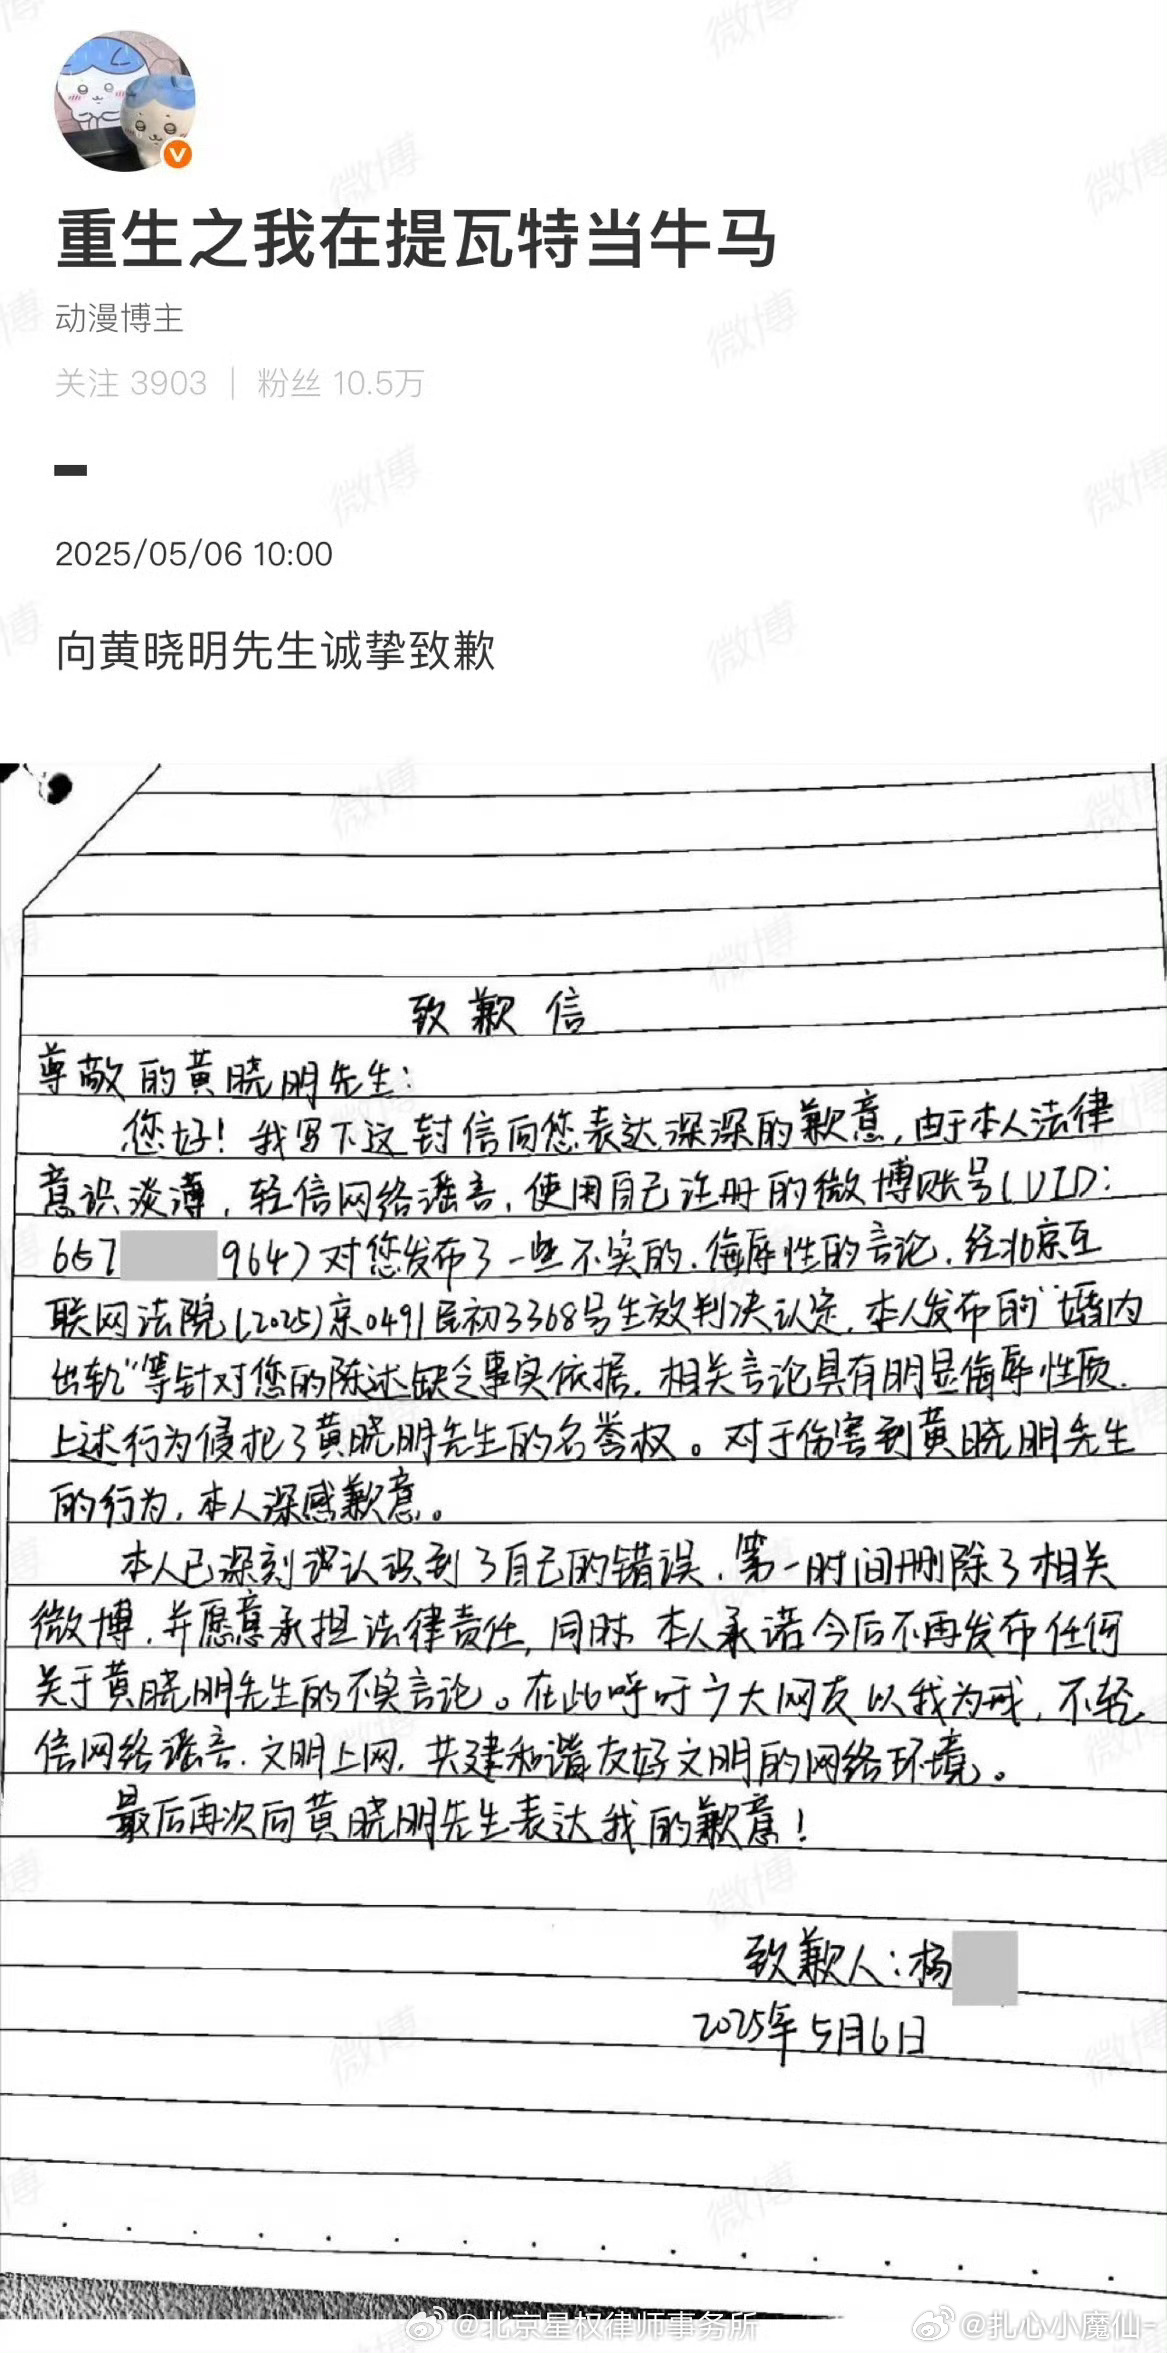 重生之我在提瓦特当牛马
动漫博主
关注 3903 | 粉丝 10.5万
2025/05/06 10:00
向黄晓明先生诚挚致歉
致歉信
尊敬的黄晓明先生：
您好！我写下这封信向您表达深深的歉意，由于本人法律
意识淡薄，轻信网络谣言，使用自己注册的微博账号（UID：
657 964）对您发布了一些不实的、侮辱性的言论，经北京互
联网法院（2025）京0491民初3368号生效判决认定，本人发布的“婚内
出轨”等针对您的陈述缺乏事实依据，相关言论具有明显侮辱性质，
上述行为侵犯了黄晓明先生的名誉权。对于伤害到黄晓明先生
的行为，本人深感歉意。
本人已深刻认识到了自己的错误，第一时间删除了相关
微博，并愿意承担法律责任，同时，本人承诺今后不再发布任何
关于黄晓明先生的不实言论。在此呼吁广大网友以我为戒，不轻
信网络谣言，文明上网，共建和谐友好文明的网络环境。
最后再次向黄晓明先生表达我的歉意！
致歉人：杨
2025年5月6日
@北京星权律师事务所 @扎心小魔仙-
微博